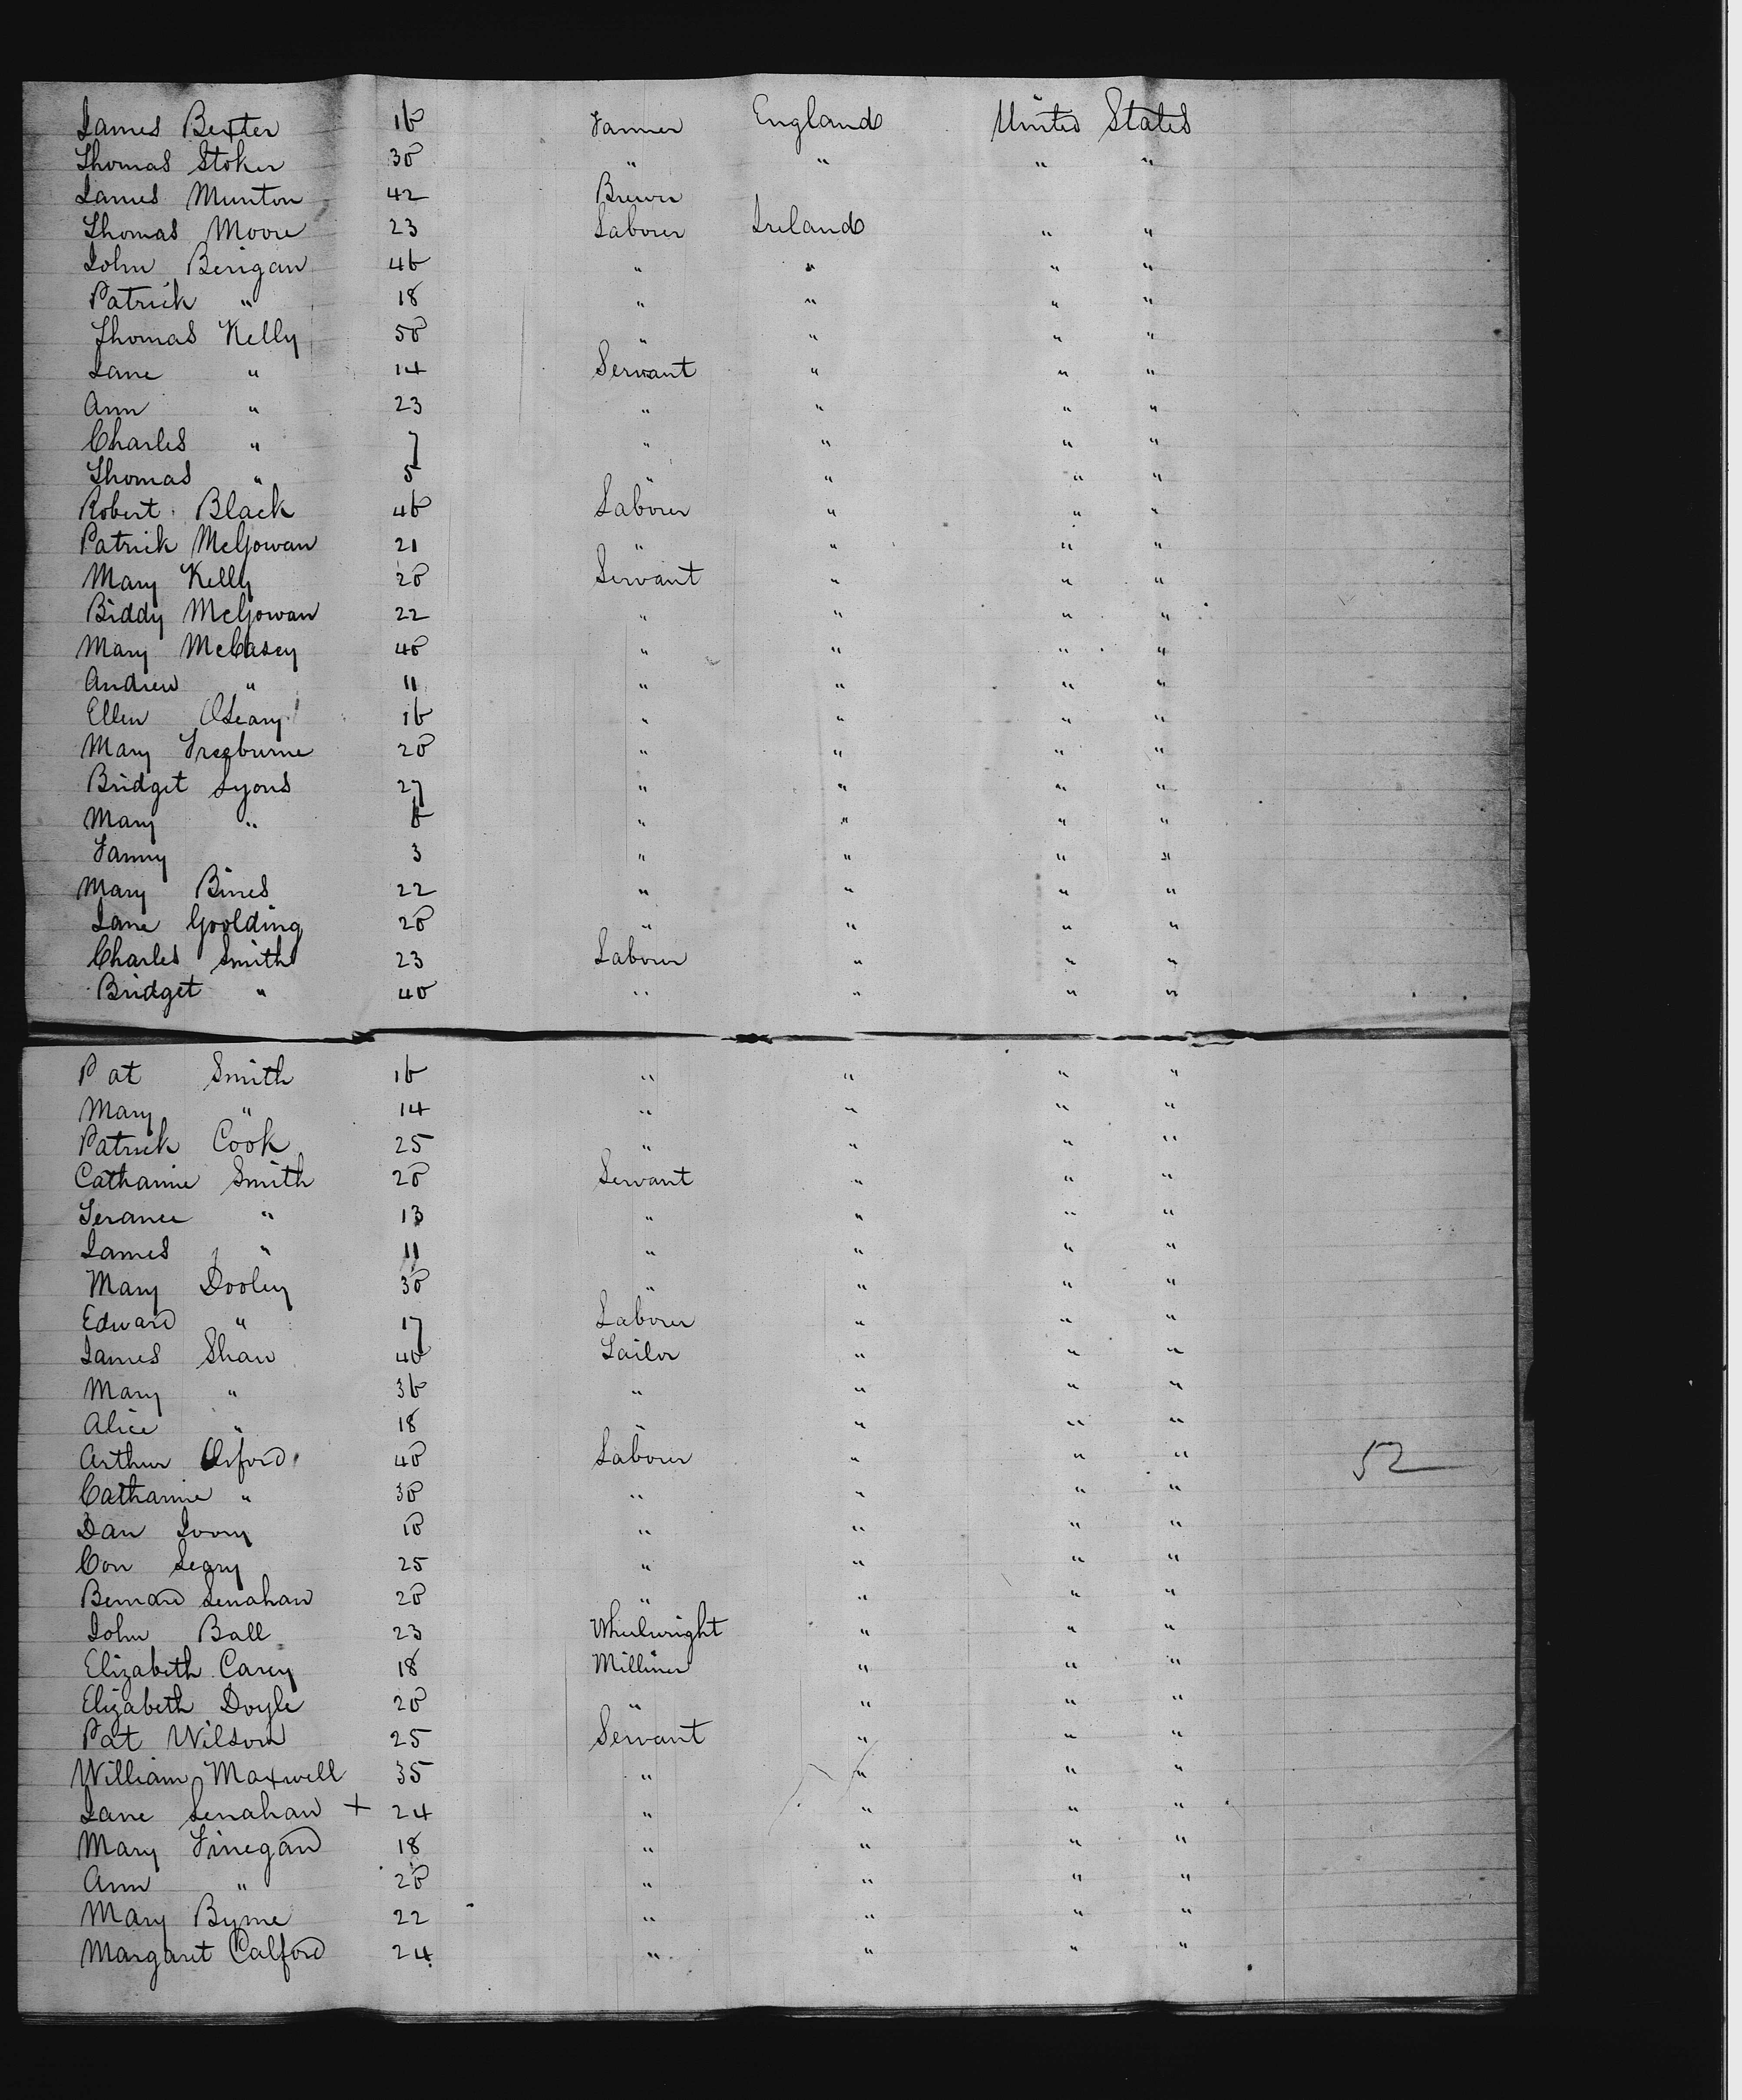 James Bexter 16 Farmer England United States
Thomas Stoker 30 " " " "
James Munton 42 Brewer
Thomas Moore 23 Laborer Ireland " "
John Berigan 46 " " " "
Patrick " 18 " " " "
Thomas Kelly 50 " " " "
Jane " 14 Servant " " "
Ann " 23 " " " "
Charles " 7 " " " "
Thomas " 5 " " " "
Robert Black 46 Laborer " " "
Patrick McGowan 21 " " " "
Mary Kelly 20 Servant " " "
Biddy McGowan 22 " " " "
Mary McCasey 40 " " " "
Andrew " 11 " " " "
Ellen OLeary 16 " " " "
Mary Freeburne 20 " " " "
Bridget Lyons 27 " " " "
Mary " 6 " " " "
Fanny 3 " " " "
Mary Bines 22 " " " "
Jane Goolding 20 " " " "
Charles Smith 23 Laborer " " "
Bridget " 40 " " " "
Pat Smith 16 " " " "
Mary " 14 " " " "
Patrick Cook 25 " " " "
Catharine Smith 20 Servant " " "
Terance " 13 " " " "
James " 11 " " " "
Mary Dooley 30 " " " "
Edward " 17 Laborer " " "
James Shaw 40 Tailor " " "
Mary " 36 " " " "
Alice " 18 " " " "
Arthur Orford 40 Laborer " " " 52
Catharine " 30 " " " "
Dan Ivory 10 " " " "
Con Leary 25 " " " "
Bernard Lenahan 20 " " " "
John Ball 23 Wheelwright " " "
Elizabeth Carey 18 Milliner " " "
Elizabeth Doyle 20 " " " "
Pat Wilson 25 Servant " " "
William Maxwell 35 " " " "
Jane Lenahan + 24 " " " "
Mary Finegan 18 " " " "
Ann " 20 " " " "
Mary Byrne 22 " " " "
Margaret Calford 24 " " " "